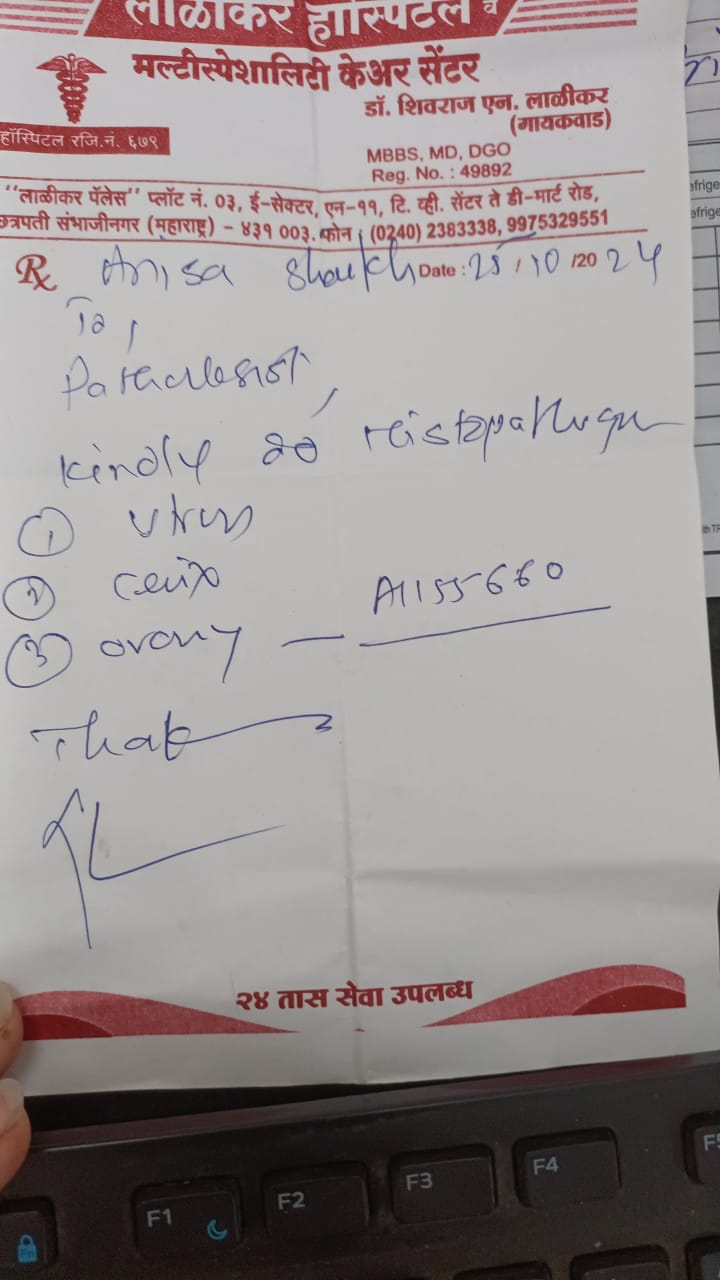 लाळीकर हॉस्पिटल व
मल्टीस्पेशालिटी केअर सेंटर
डॉ. शिवराज एन. लाळीकर
(गायकवाड)
हॉस्पिटल रजि.नं. ६७९
MBBS, MD, DGO
Reg. No. : 49892
"लाळीकर पॅलेस" प्लॉट नं. ०३, ई-सेक्टर, एन-११, टि. व्ही. सेंटर ते डी-मार्ट रोड,
छत्रपती संभाजीनगर (महाराष्ट्र) - ४३१ ००३. फोन : (0240) 2383338, 9975329551
Rx Anisa Shaikh Date : 25/10/2024
To,
Kindly do
① utrus
②
③ ovary — A1155660
२४ तास सेवा उपलब्ध
efrige
efrige
th TR
F1 F2 F3 F4 F5
Fn